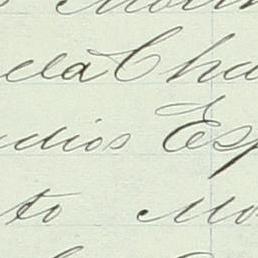 ela Cha
udios Esp
to Mo